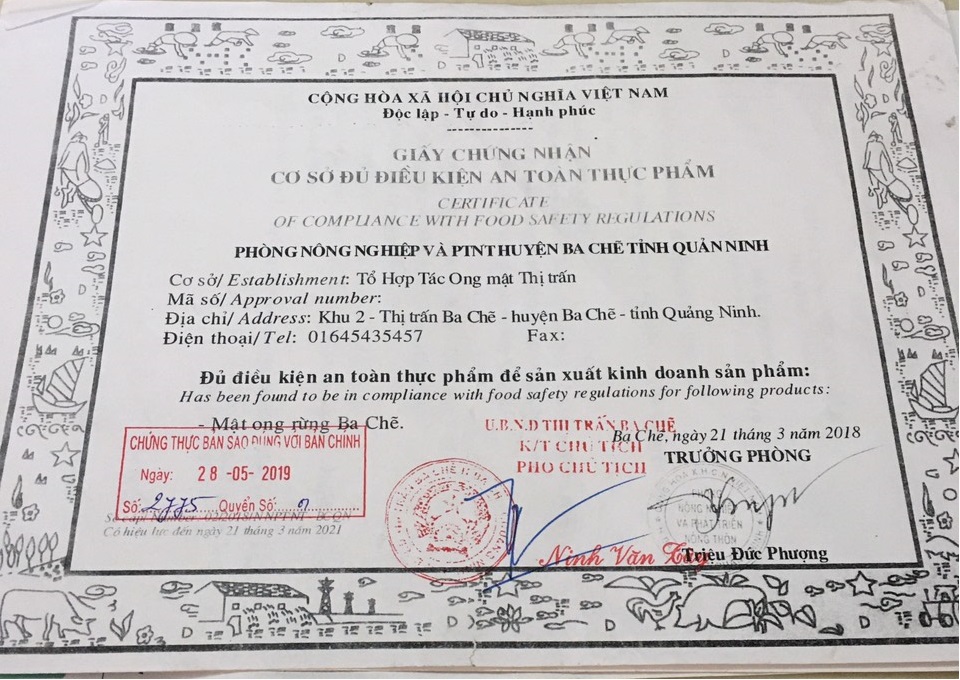 CỘNG HÒA XÃ HỘI CHỦ NGHĨA VIỆT NAM
Độc lập - Tự do - Hạnh phúc
---------------
GIẤY CHỨNG NHẬN
CƠ SỞ ĐỦ ĐIỀU KIỆN AN TOÀN THỰC PHẨM
CERTIFICATE
OF COMPLIANCE WITH FOOD SAFETY REGULATIONS
PHÒNG NÔNG NGHIỆP VÀ PTNT HUYỆN BA CHẼ TỈNH QUẢN NINH
Cơ sở/ Establishment: Tổ Hợp Tác Ong mật Thị trấn
Mã số/ Approval number:
Địa chỉ/ Address: Khu 2 - Thị trấn Ba Chẽ - huyện Ba Chẽ - tỉnh Quảng Ninh.
Điện thoại/ Tel: 01645435457 Fax:
Đủ điều kiện an toàn thực phẩm để sản xuất kinh doanh sản phẩm:
Has been found to be in compliance with food safety regulations for following products:
- Mật ong rừng Ba Chẽ.
U.B.N.D THỊ TRẤN BA CHẼ
Ba Chẽ, ngày 21 tháng 3 năm 2018
CHỨNG THỰC BẢN SAO ĐÚNG VỚI BẢN CHÍNH
K/T CHỦ TỊCH
TRƯỞNG PHÒNG
PHÓ CHỦ TỊCH
Ngày: 28 -05- 2019
Số: 2775 Quyển Số:
Có hiệu lực đến ngày 21 tháng 3 năm 2021
NÔNG NGHIỆP
VÀ PHÁT TRIỂN
NÔNG THÔN
Ninh Văn
Triệu Đức Phượng